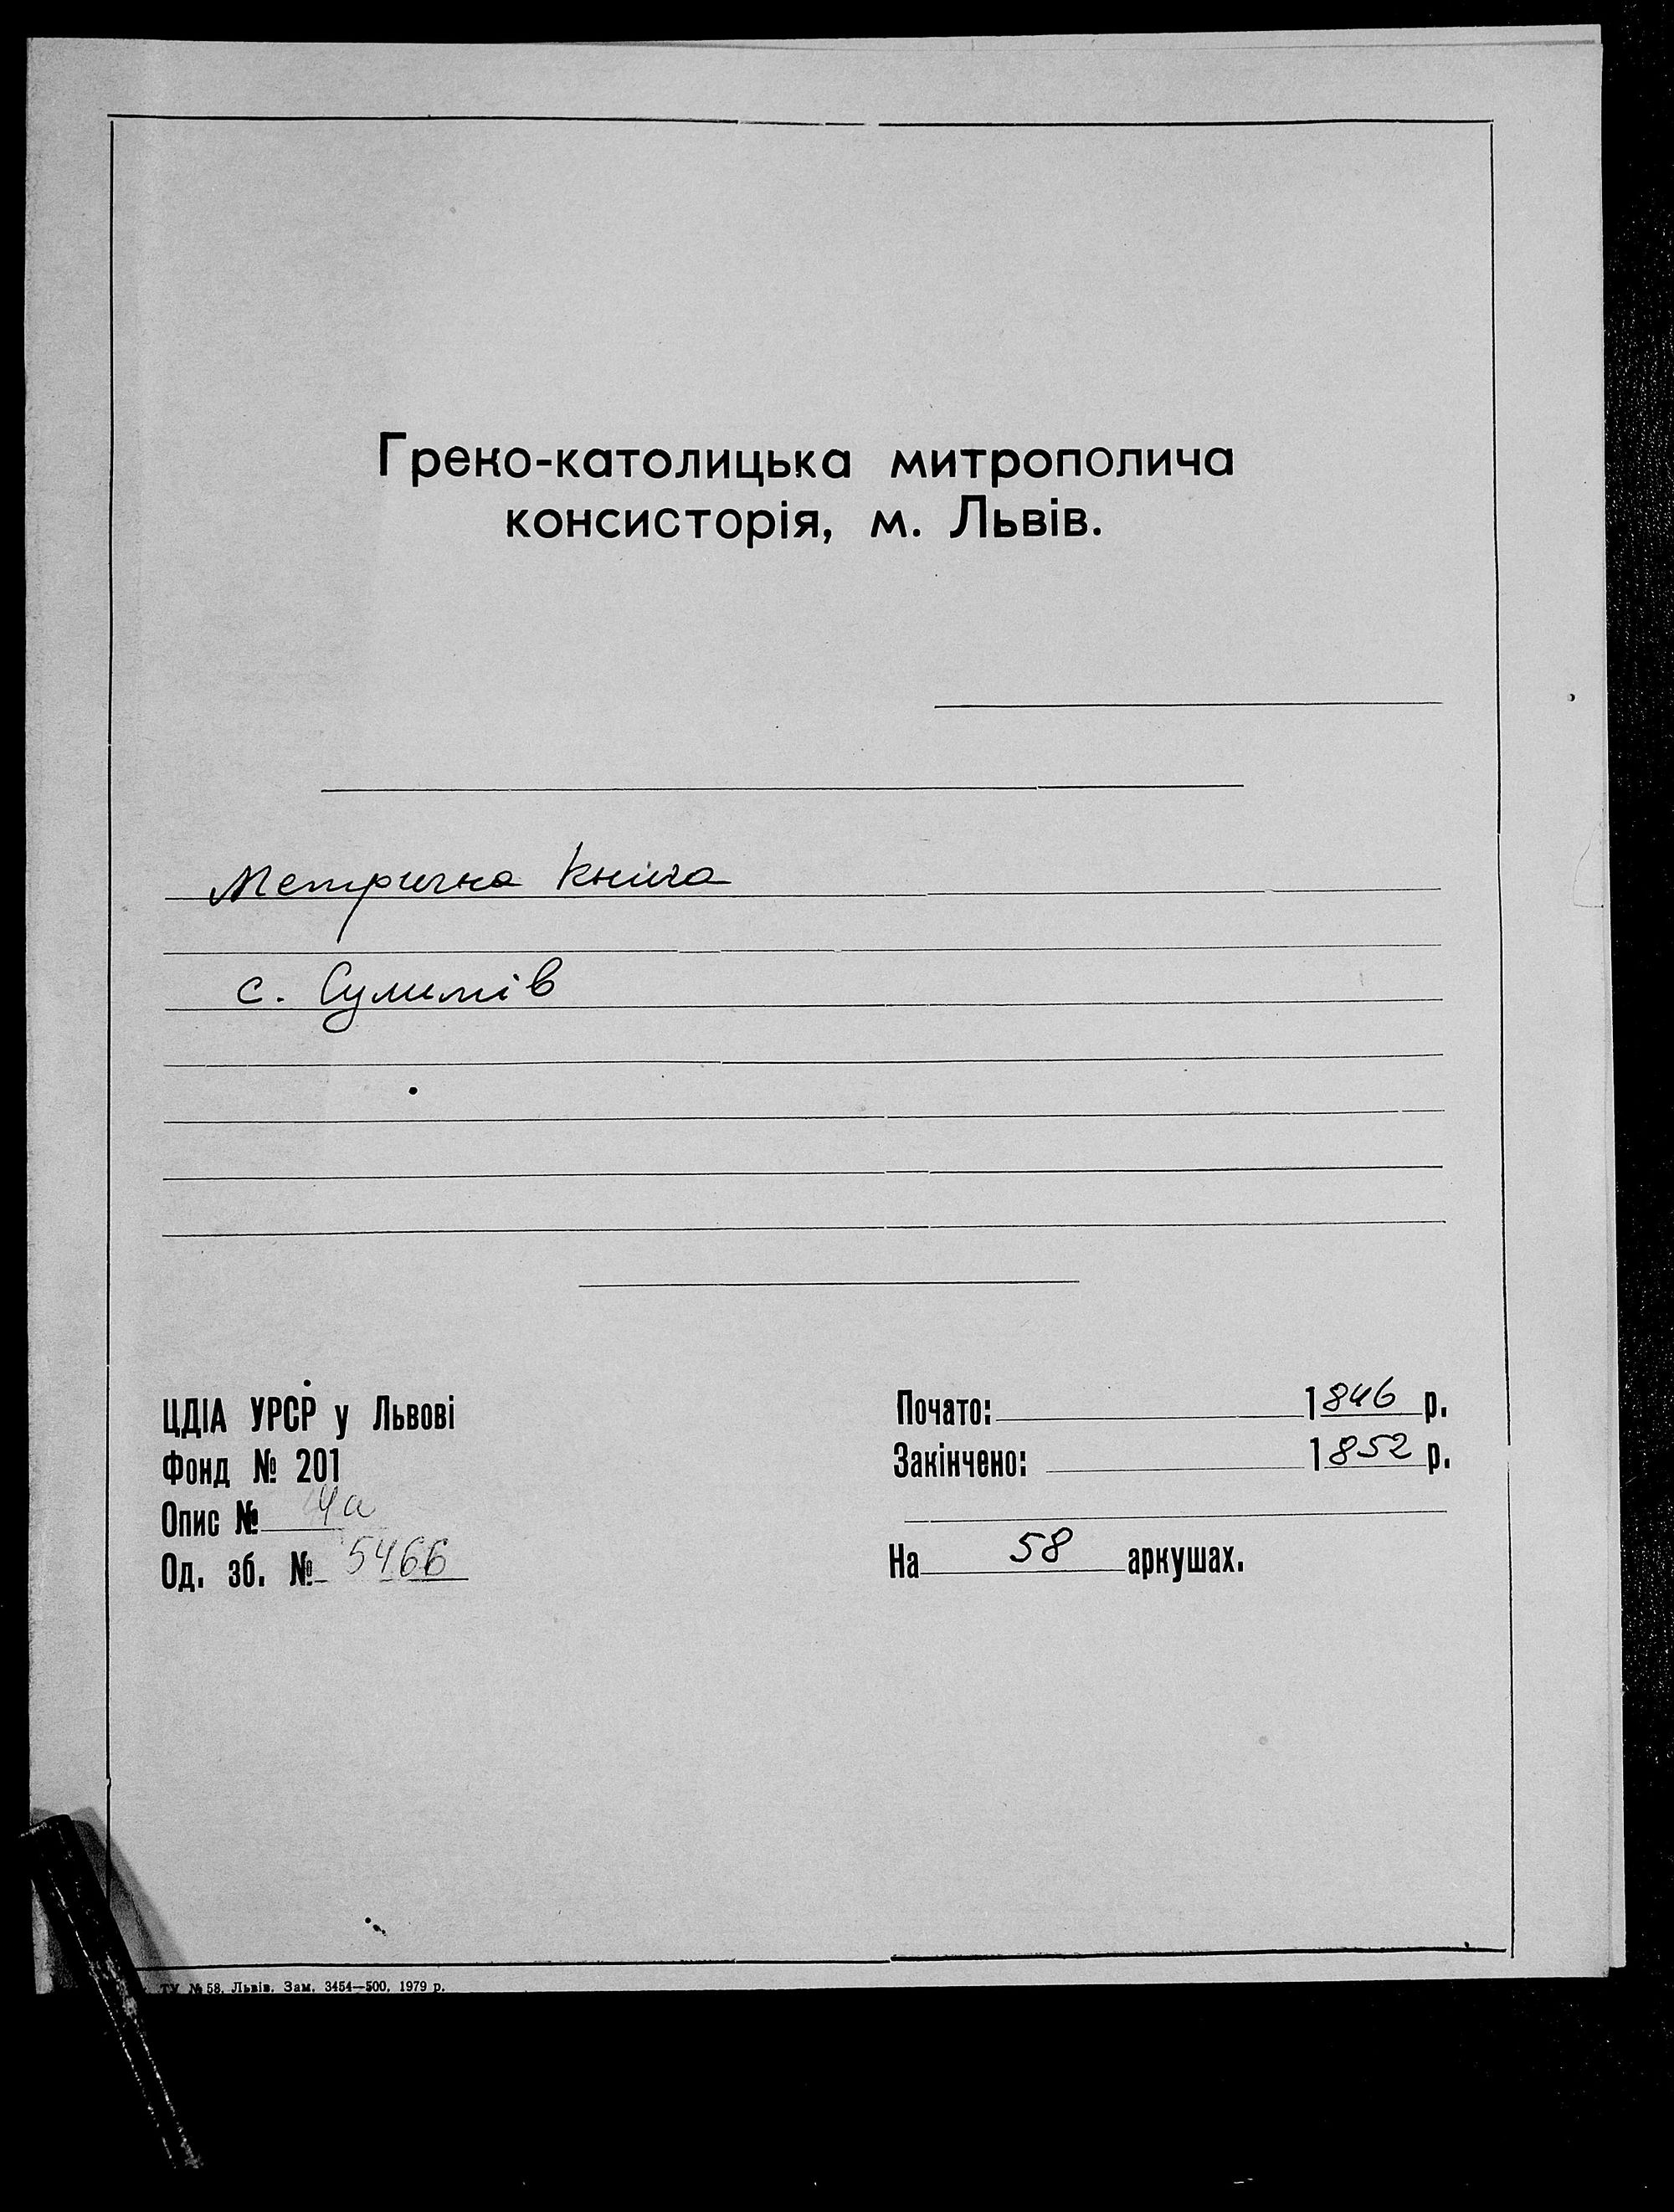 Греко-католицька митрополича
консисторія, м. Львів.
Метрична книга
с. Сулимів
ЦДІА УРСР у Львові
Фонд № 201
Опис № 4а
Од. зб. № 5466
Почато: 1846 р.
Закінчено: 1852 р.
На 58 аркушах.
ТУ № 58. Львів. Зам. 3454—500. 1979 р.